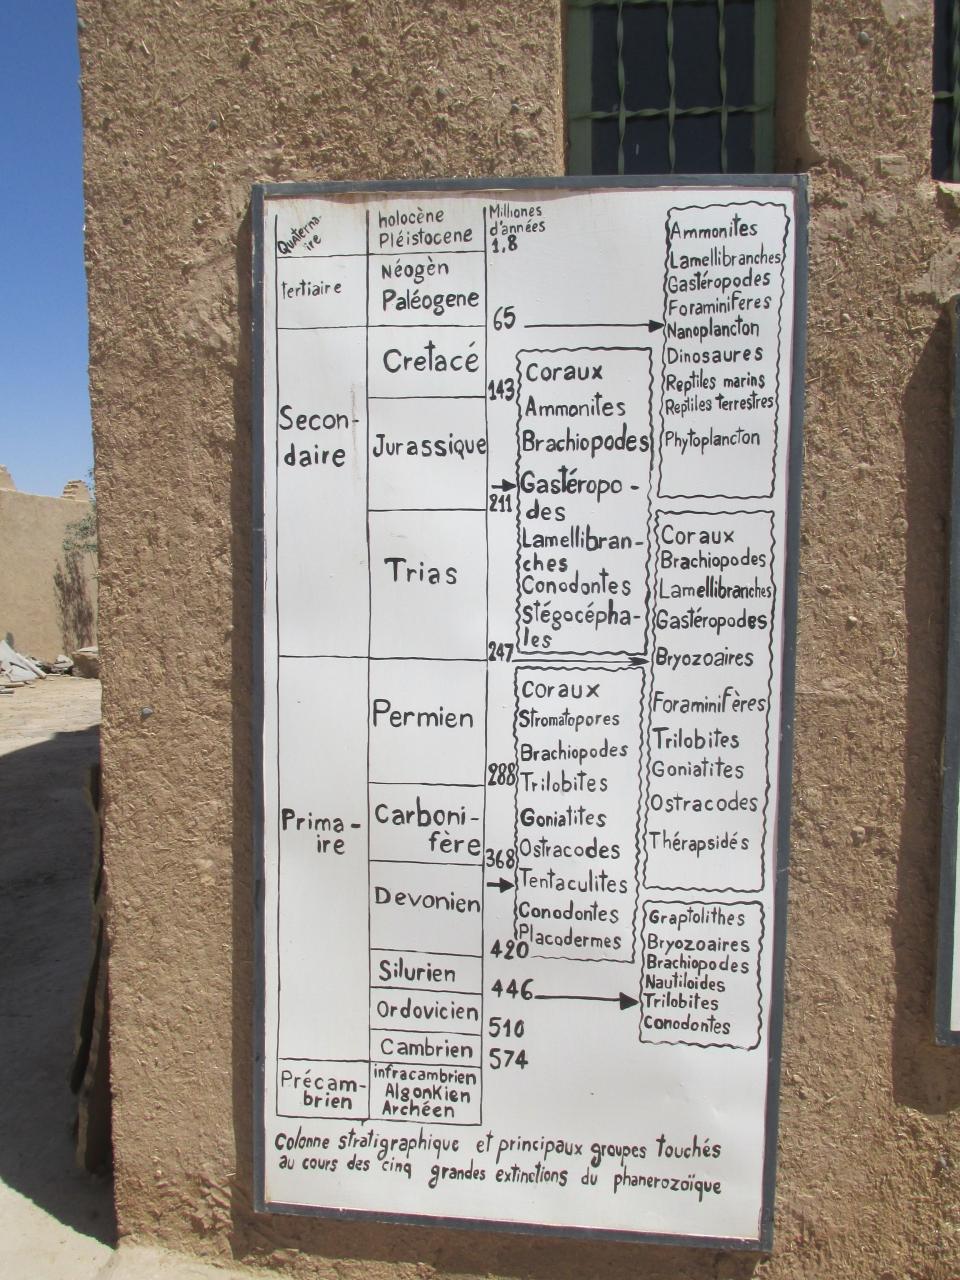 Quaterna-
ire
holocène
Pléistocene
Milliones
d'années
1,8
tertiaire
Néogèn
Paléogene
65
Ammonites
Lamellibranches
Gastéropodes
Foraminiferes
Nanoplancton
Dinosaures
Reptiles marins
Reptiles terrestres
Phytoplancton
Secon-
daire
Cretacé
143
Jurassique
211
Trias
247
Coraux
Ammonites
Brachiopodes
Gastéropo-
des
Lamellibran-
ches
Conodontes
Stégocépha-
les
Coraux
Brachiopodes
Lamellibranches
Gastéropodes
Bryozoaires
Foraminifères
Trilobites
Goniatites
Ostracodes
Thérapsidés
Prima-
ire
Permien
288
Carboni-
fère
368
Devonien
420
Silurien
446
Ordovicien
510
Cambrien
574
Coraux
Stromatopores
Brachiopodes
Trilobites
Goniatites
Ostracodes
Tentaculites
Conodontes
Placodermes
Graptolithes
Bryozoaires
Brachiopodes
Nautiloides
Trilobites
Conodontes
Précam-
brien
infracambrien
Algonkien
Archéen
Colonne stratigraphique et principaux groupes touchés
au cours des cinq grandes extinctions du phanerozoïque